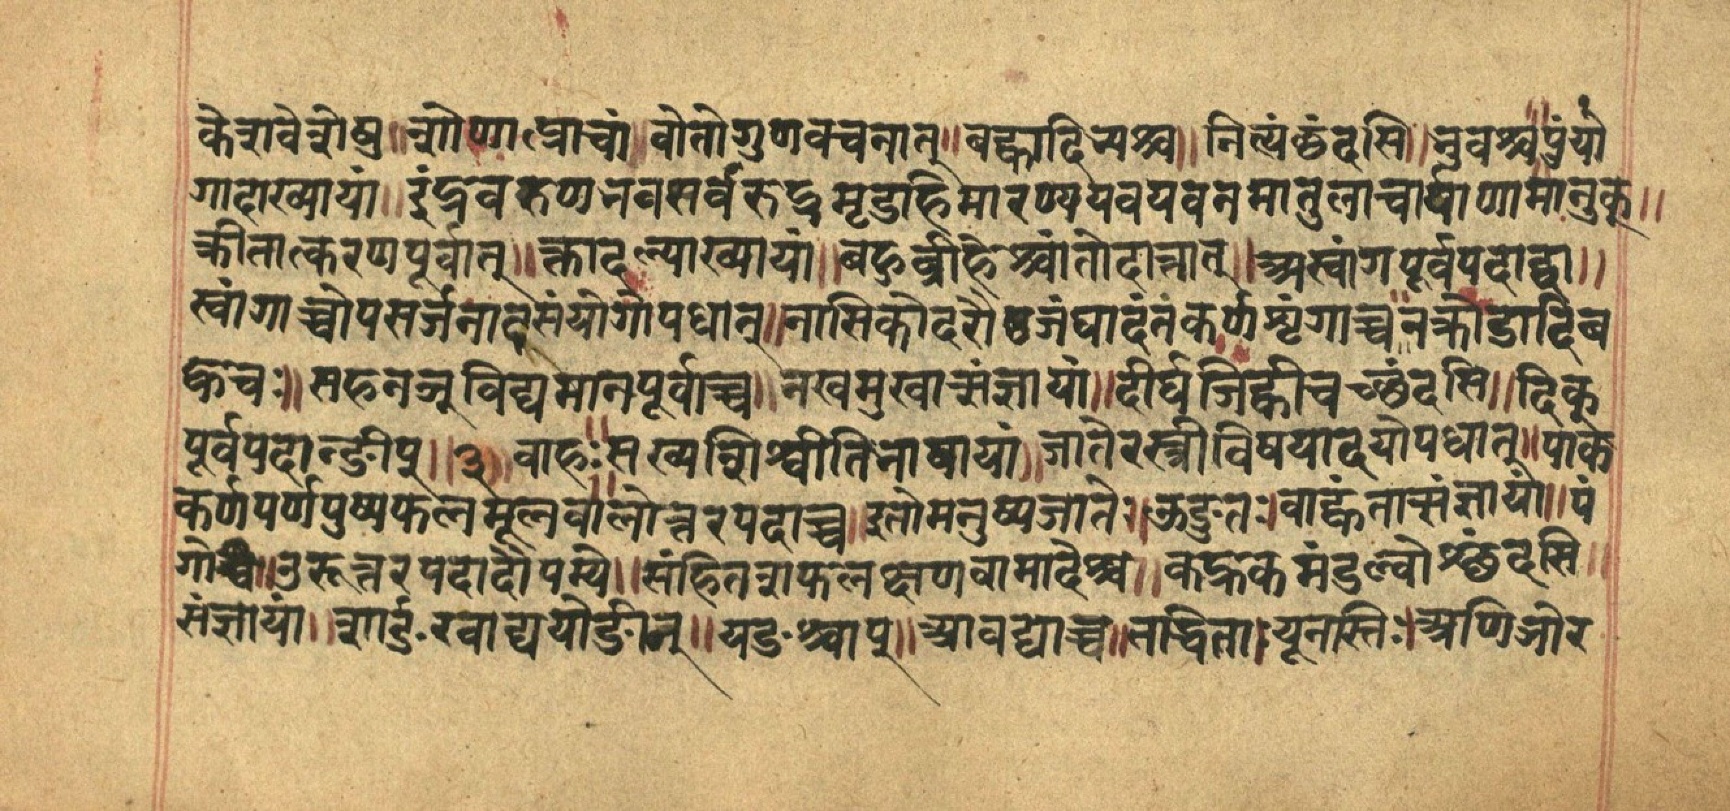 केशवेशेषु॥शोणात्प्राचां॥वोतोगुणवचनात्॥बह्वादिभ्यश्च॥नित्यंछंदसि॥भुवश्च॥पुंयो
गादाख्यायां॥इंद्रवरुणभवसर्वरुद्रमृडाहिमारण्ययवयवनमातुलाचार्याणामानुक्॥
क्रीतात्करणपूर्वात्॥क्तादल्पाख्यायां॥बहुव्रीहेश्चांतोदात्तात्॥अस्वांगपूर्वपदाद्वा॥
स्वांगाच्चोपसर्जनादसंयोगोपधात्॥नासिकोदरौष्ठजंघादंतकर्णशृंगाच्च॥नक्रोडादिब
ह्वचः॥सहनञ्विद्यमानपूर्वाच्च॥नखमुखात्संज्ञायां॥दीर्घजिह्वीचच्छंदसि॥दिक्
पूर्वपदान्ङीप्॥३॥वाहः॥सख्यशिश्वीतिभाषायां॥जातेरस्त्रीविषयादयोपधात्॥पाक
कर्णपर्णपुष्पफलमूलवालोत्तरपदाच्च॥इतोमनुष्यजातेः॥ऊङुतः॥वाह्वंतात्संज्ञायां॥पं
गोश्च॥ऊरूत्तरपदादौपम्ये॥संहितशफलक्षणवामादेश्च॥कद्रुकमंडल्वोश्छंदसि॥
संज्ञायां॥शार्ङ्गरवाद्यञोङीन्॥यङश्चाप्॥आवट्याच्च॥तद्धिताः॥यूनस्तिः॥अणिञोर